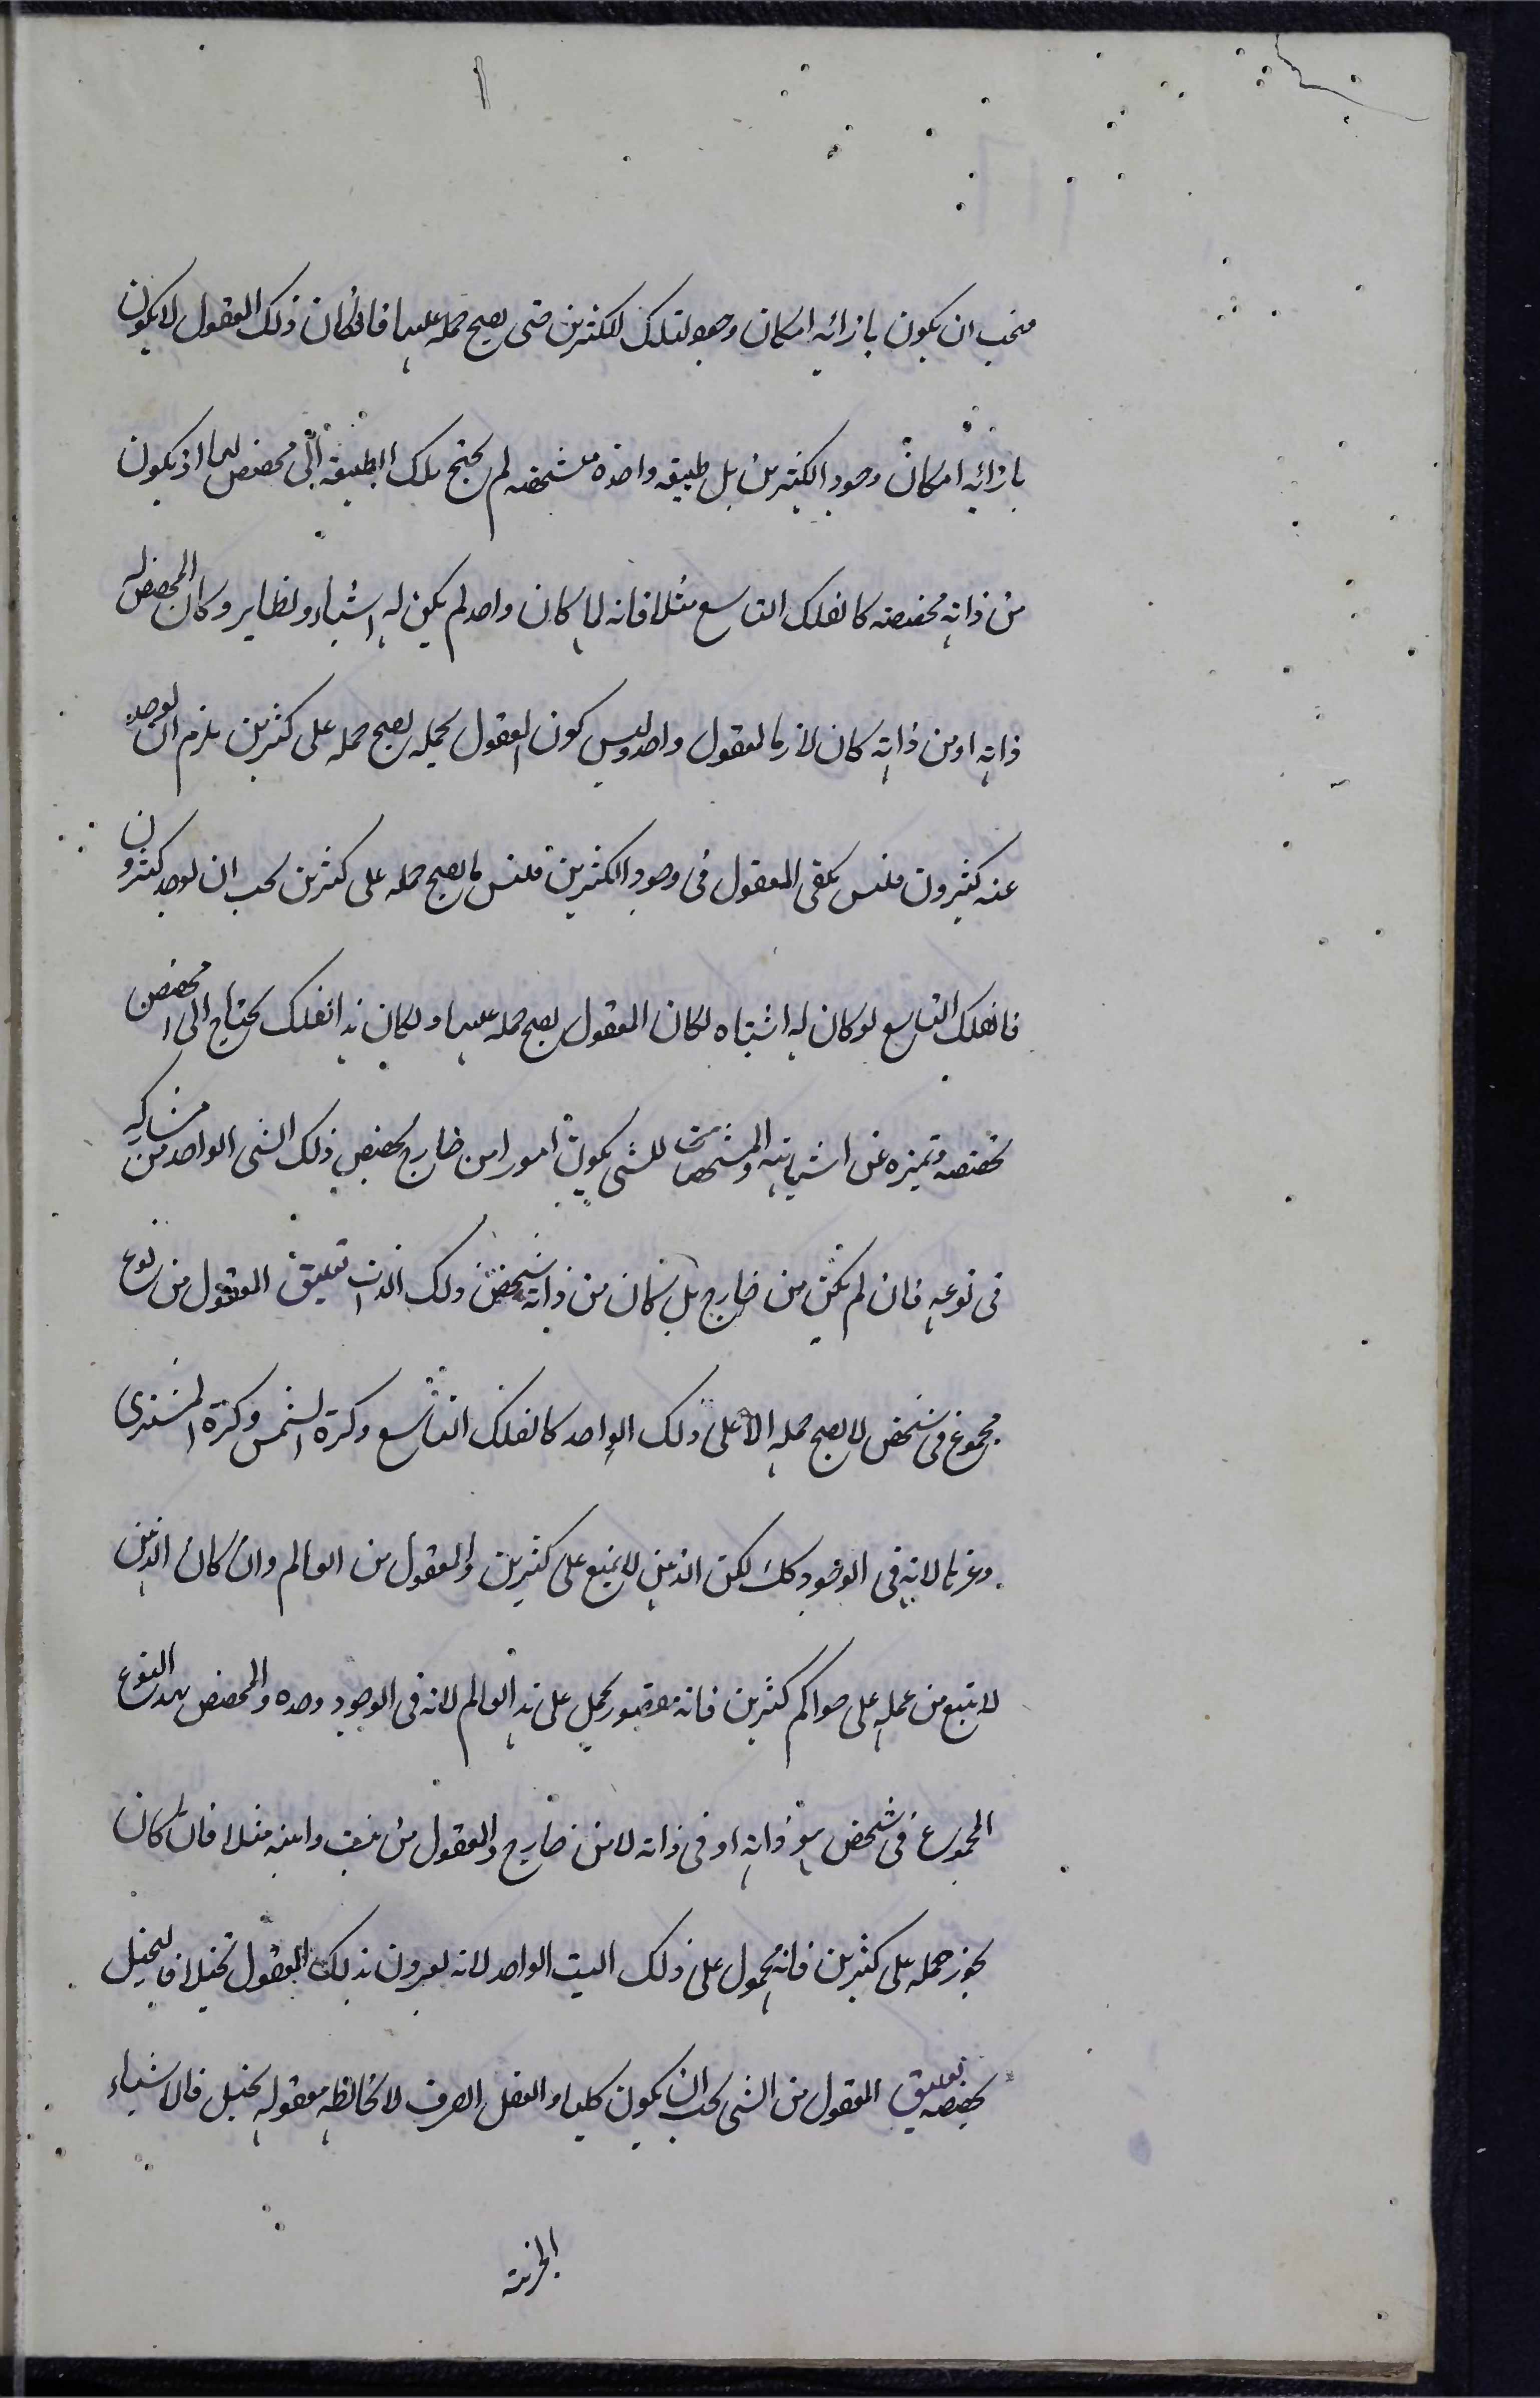 فيجب ان يكون بازائه امكان وجود لتلك الكثيرين حتى يصح حمله عليها فاذا كان ذلك المعقول لا يكون
بازائه امكان وجود الكثيرين بل طبيعه واحده مشخصه لم يحتج تلك الطبيعه الى مخصص لها اذ يكون
من ذاته مخصصه كالفلك التاسع مثلا فانه لما كان واحد لم يكن له اشباه ونظاير وكان المخصص له
ذاته او من ذاته كان لازما لمعقول واحد وليس كون المعقول بحيث يصح حمله على كثيرين يلزم ان يوجد
عنه كثيرون فليس يكفى المعقول فى وجود الكثيرين فليس ما يصح حمله على كثيرين يجب ان يوجد كثيرون
فالفلك التاسع لو كان له اشباه لكان المعقول يصح حمله عليها ولكان هذا الفلك يحتاج الى مخصص
تخصصه وتميزه عن اشباهه والمشخصات للشى يكون امورا من خارج يخصص ذلك الشى الواحد من مشاركيه
فى نوعه فان لم تكن من خارج بل كان من ذاته شخص ذلك الذات تعليق المعقول من نوع
مجموع فى شخص لا يصح حمله الا على ذلك الواحد كالفلك التاسع وكرة الشمس وكرة المشترى
وغيرها لانه فى الوجود كك لكن الذهن لا يمنع على كثيرين والمعقول من العالم وان كان الذهن
لا يمنع من حمله على عوالم كثيرين فانه مقصور يحمل على هذا العالم لانه فى الوجود وحده والمخصص بهذا النوع
المجموع فى شخص هو ذاته او فى ذاته لا من خارج والمعقول من بيت وابنه مثلا فان كان
يجوز حمله على كثيرين فانه محمول على ذلك البيت الواحد لانه يقرون بذلك المعقول تخيلا فالتخيل
يخصصه تعليق المعقول من الشى يجب ان يكون كليا والعقل الصرف لا يخالطه معقوله تخيل فالاشياء
الجزئيه